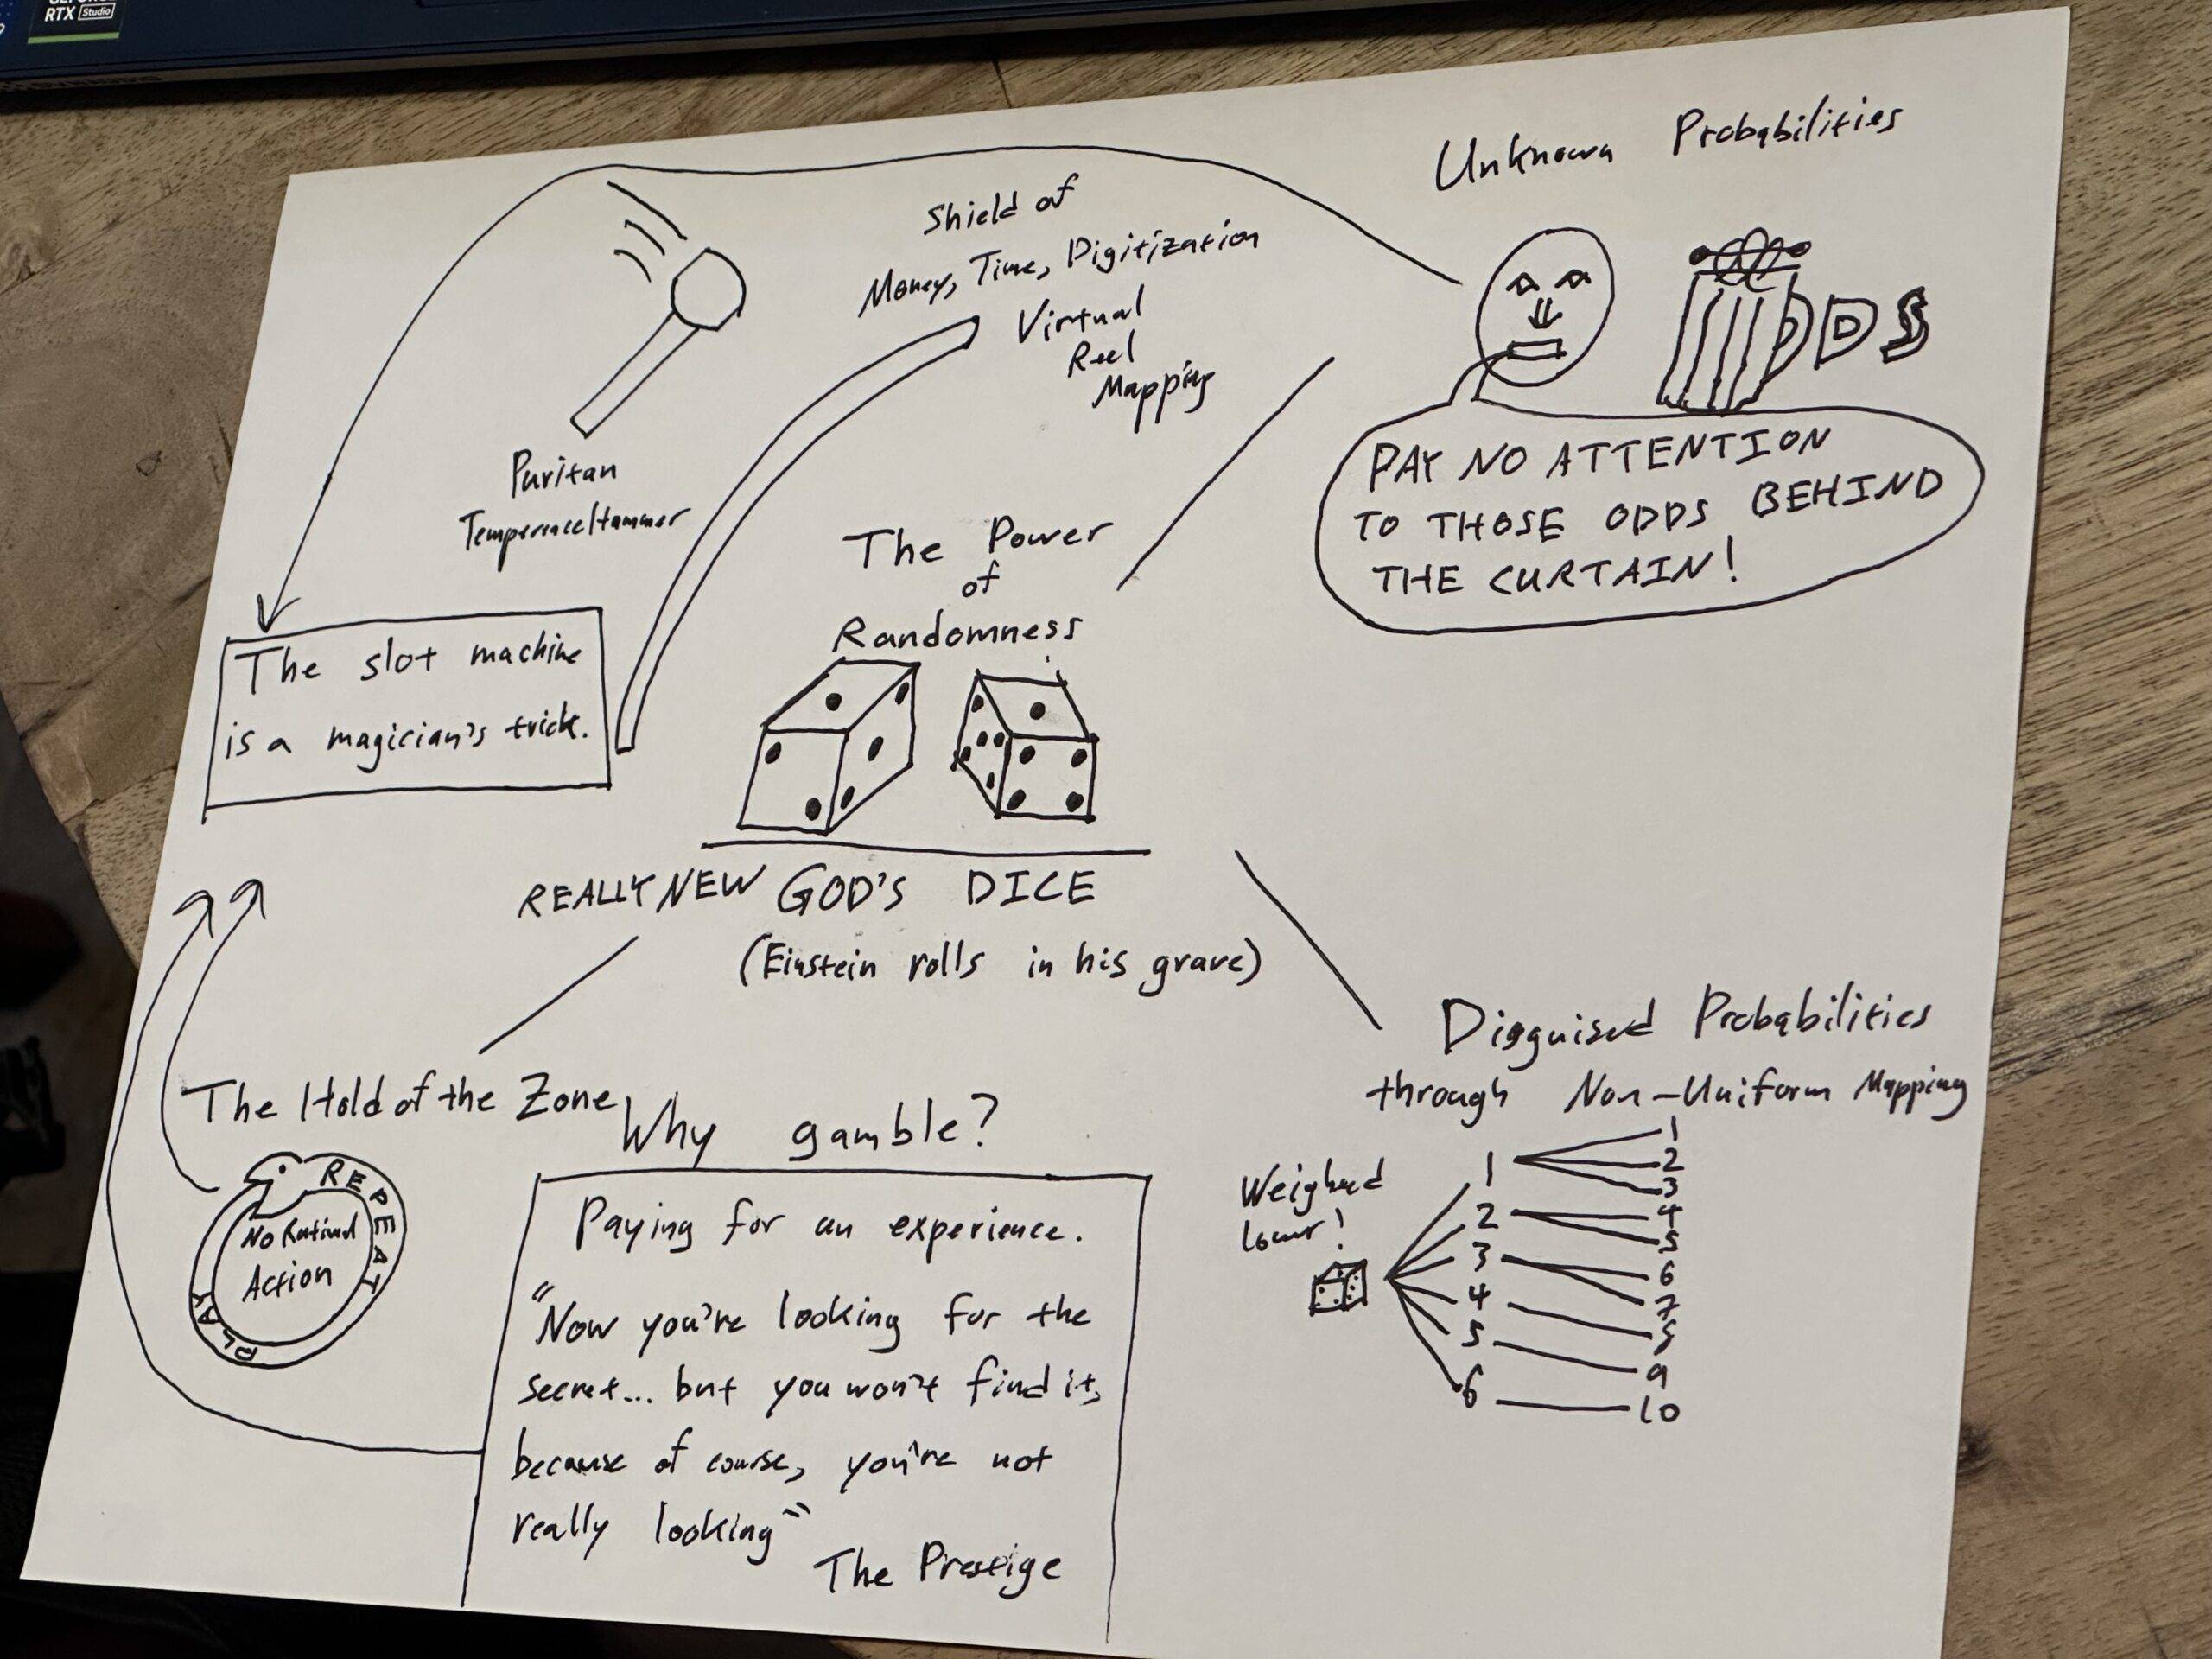 RTX Studio
Unknown Probabilities
Shield of
Money, Time, Digitization
Virtual
Reel
Mapping
DDS
PAY NO ATTENTION
TO THOSE ODDS BEHIND
THE CURTAIN!
Puritan
Temperence Hammer
The slot machine
is a magician's trick.
The Power
of
Randomness
REALLY NEW GOD'S DICE
(Einstein rolls in his grave)
The Hold of the Zone
REPEAT
PLAY
No Rational
Action
Why gamble?
Paying for an experience.
"Now you're looking for the
secret... but you won't find it,
because of course, you're not
really looking"
The Prestige
Disguised Probabilities
through Non-Uniform Mapping
Weighed
lower!
1 1
2
3
2 4
5
3 6
7
4 8
5 9
6 10